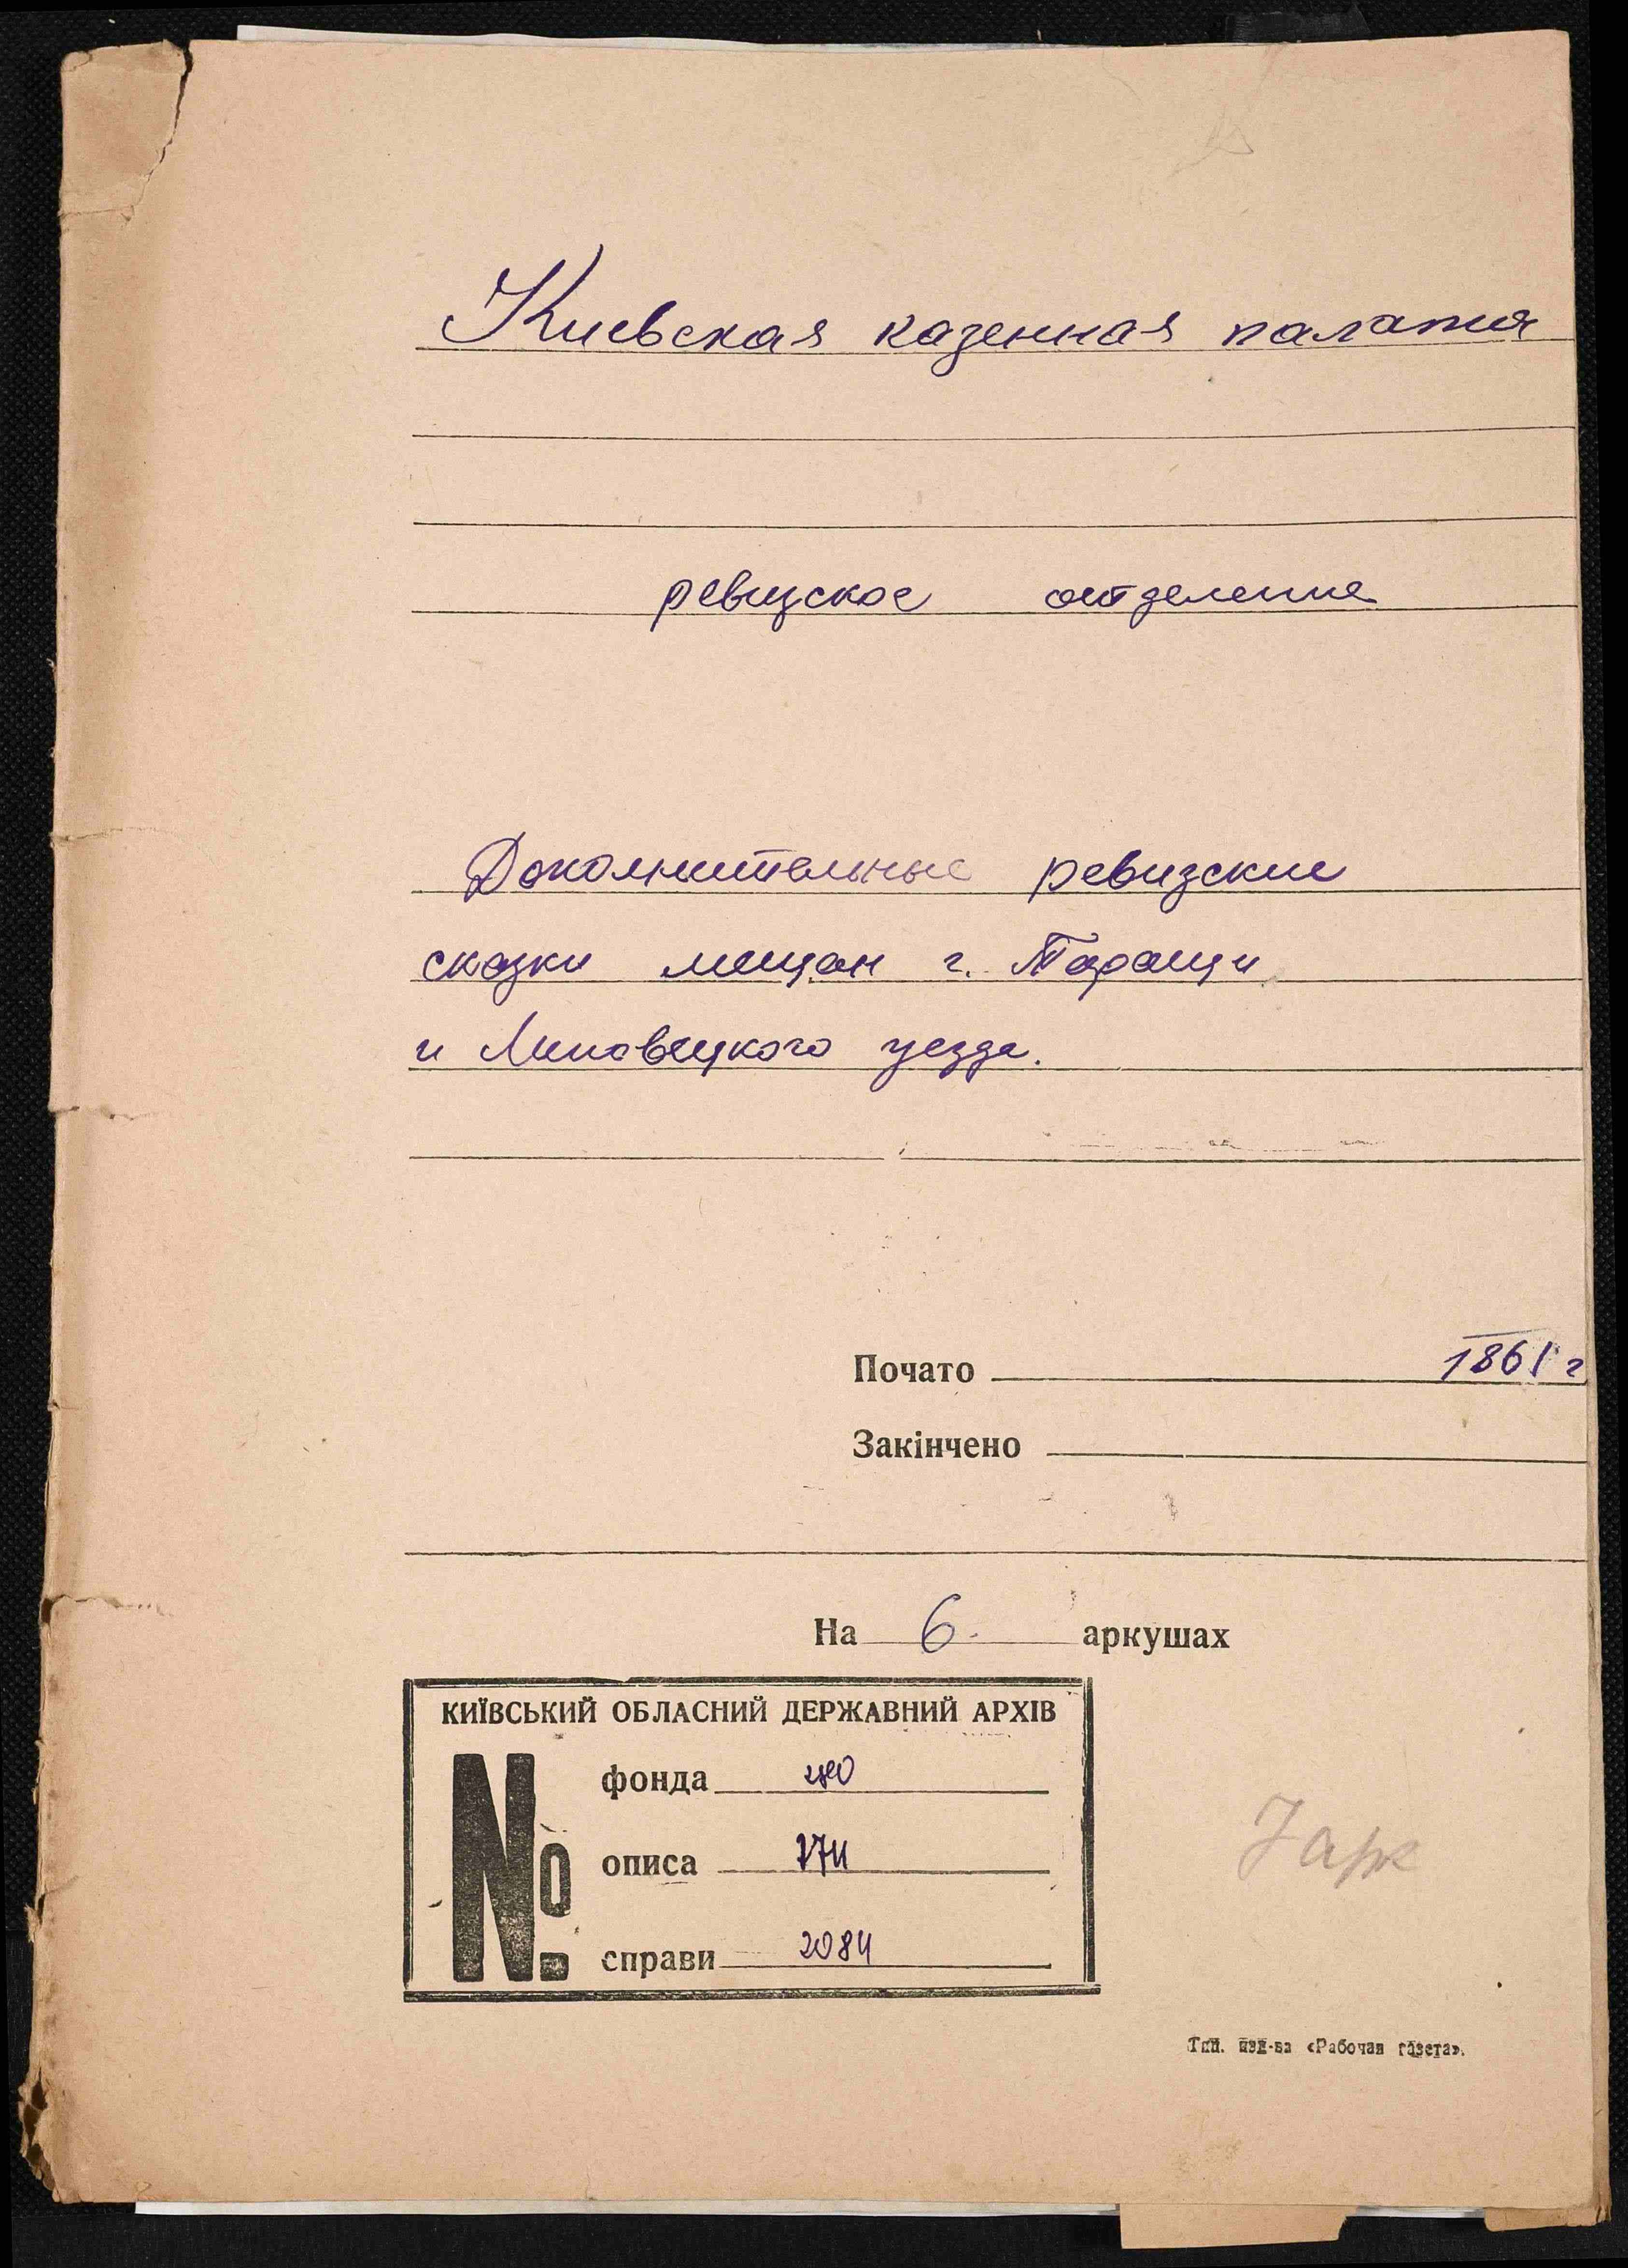 Киевская казенная палата
ревизское отделение
Дополнительные ревизские
сказки мещан г. Таращи
и Липовецкого уезда.
Почато 1861 г
Закінчено
На 6. аркушах
КИЇВСЬКИЙ ОБЛАСНИЙ ДЕРЖАВНИЙ АРХІВ
№ фонда 280
описа 174
справи 2084
Тип. изд-ва «Рабочая газета».